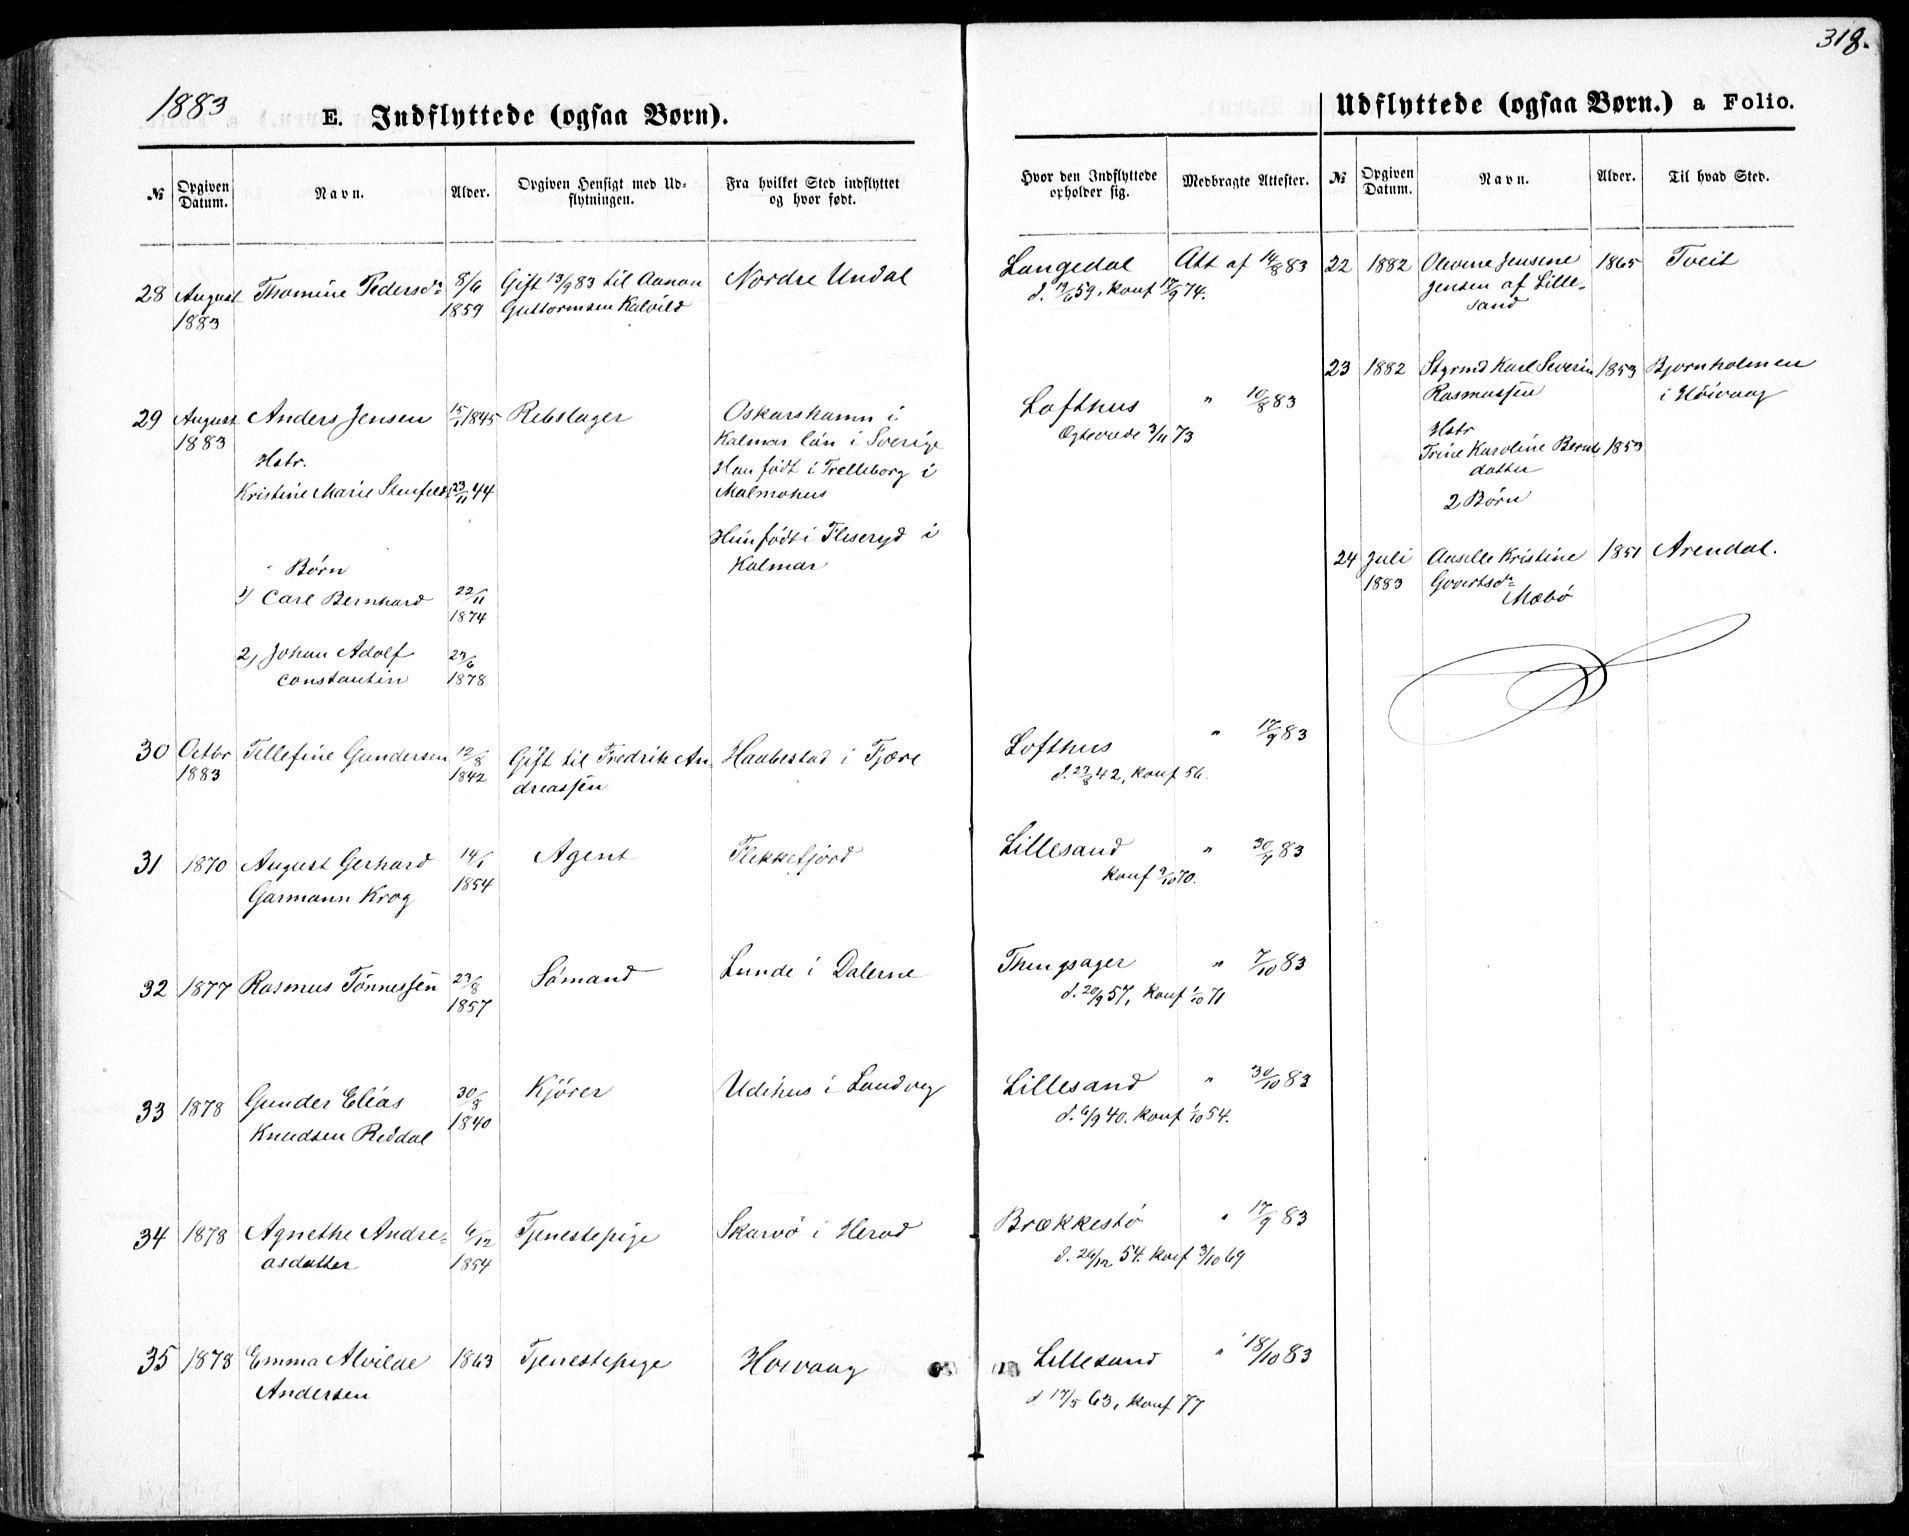 318.
1883
E. Indflyttede (ogsaa Børn).
Udflyttede (ogsaa Børn.) a Folio.
№ Opgiven Datum. Navn. Alder. Opgiven Hensigt med Udflytningen. Fra hvilket Sted indflyttet og hvor født. Hvor den Indflyttede opholder sig. Medbragte Attester.
28 August Thomine Pedersdr 8/6 Gift 13/9 83 til Aanon Nordre Undal Langedal Att af 14/8 83
1883 1859 Guttormsen Kalvild d. 19/6 59, konf 17/9 74.
29 August Anders Jensen 15/ 1845 Rebslager Oskarshamn i Lofthus " 10/8 83
1883 Kalmar län i Sverige Ægteviede 3/11 73
Hstr. Han født i Trelleborg i
Kristine Marie 23/11 44 Malmøhus
Hun født i Fliseryd i
Børn Kalmar
1) Carl Bernhard 22/11
1874
2) Johan Adolf 23/6
Constantin 1878
30 Octbr Tellefine Gundersen 12/8 Gift til Fredrik An- Haabestad i Fjære Lofthus " 17/9 83
1883 1842 dreassen d. 23/8 42, konf 56.
31 1870 August Gerhard 14/1 Agent Flekkefjord Lillesand " 30/9 83
Garmann Krog 1854 konf 9/10 70.
32 1877 Rasmus Tønnessen 23/8 Sømand Lunde i Dalerne Thingsager " 7/10 83
1857 d. 20/9 57, konf 1/10 71
33 1878 Gunder Elias 30/8 Kjører Udihus i Landvig Lillesand " 30/10 83
Knudsen Reddal 1840 d. 6/9 40. konf 1/10 54.
34 1878 Agnethe Andre- 6/12 Tjenestepige Skarvø i Herad Brækkestø " 17/9 83
asdatter 1854 d. 26/12 54. konf 3/10 69
35 1878 Emma Alvilde 1863 Tjenestepige Høivaag Lillesand " 18/10 83
Andersen d 17/5 63, konf 77
№ Opgiven Datum. Navn. Alder. Til hvad Sted.
22 1882 Olevine Jensine 1865 Tveit
Jensen af Lille-
sand
23 1882 Styrmd Karl Severin 1853 Bjornholmen
Rasmussen i Høivaag
Hstr
Trine Karoline Bernts 1853
datter
2 Børn
24 Juli Aaselle Kristine 1851 Arendal.
1883 Govertsdr
Mæbø